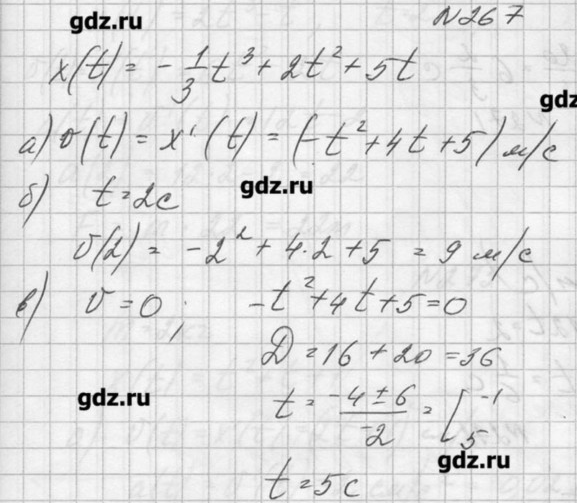 gdz.ru
№267
x(t) = -1/3 t³ + 2t² + 5t
gdz.ru
а) v(t) = x'(t) = (-t² + 4t + 5) м/с
gdz.ru
б) t = 2с
v(2) = -2² + 4·2 + 5 = 9 м/с
в) v = 0; -t² + 4t + 5 = 0
D = 16 + 20 = 36
gdz.ru
t = (-4 ± 6)/-2 = [ -1
5
gdz.ru
t = 5 с